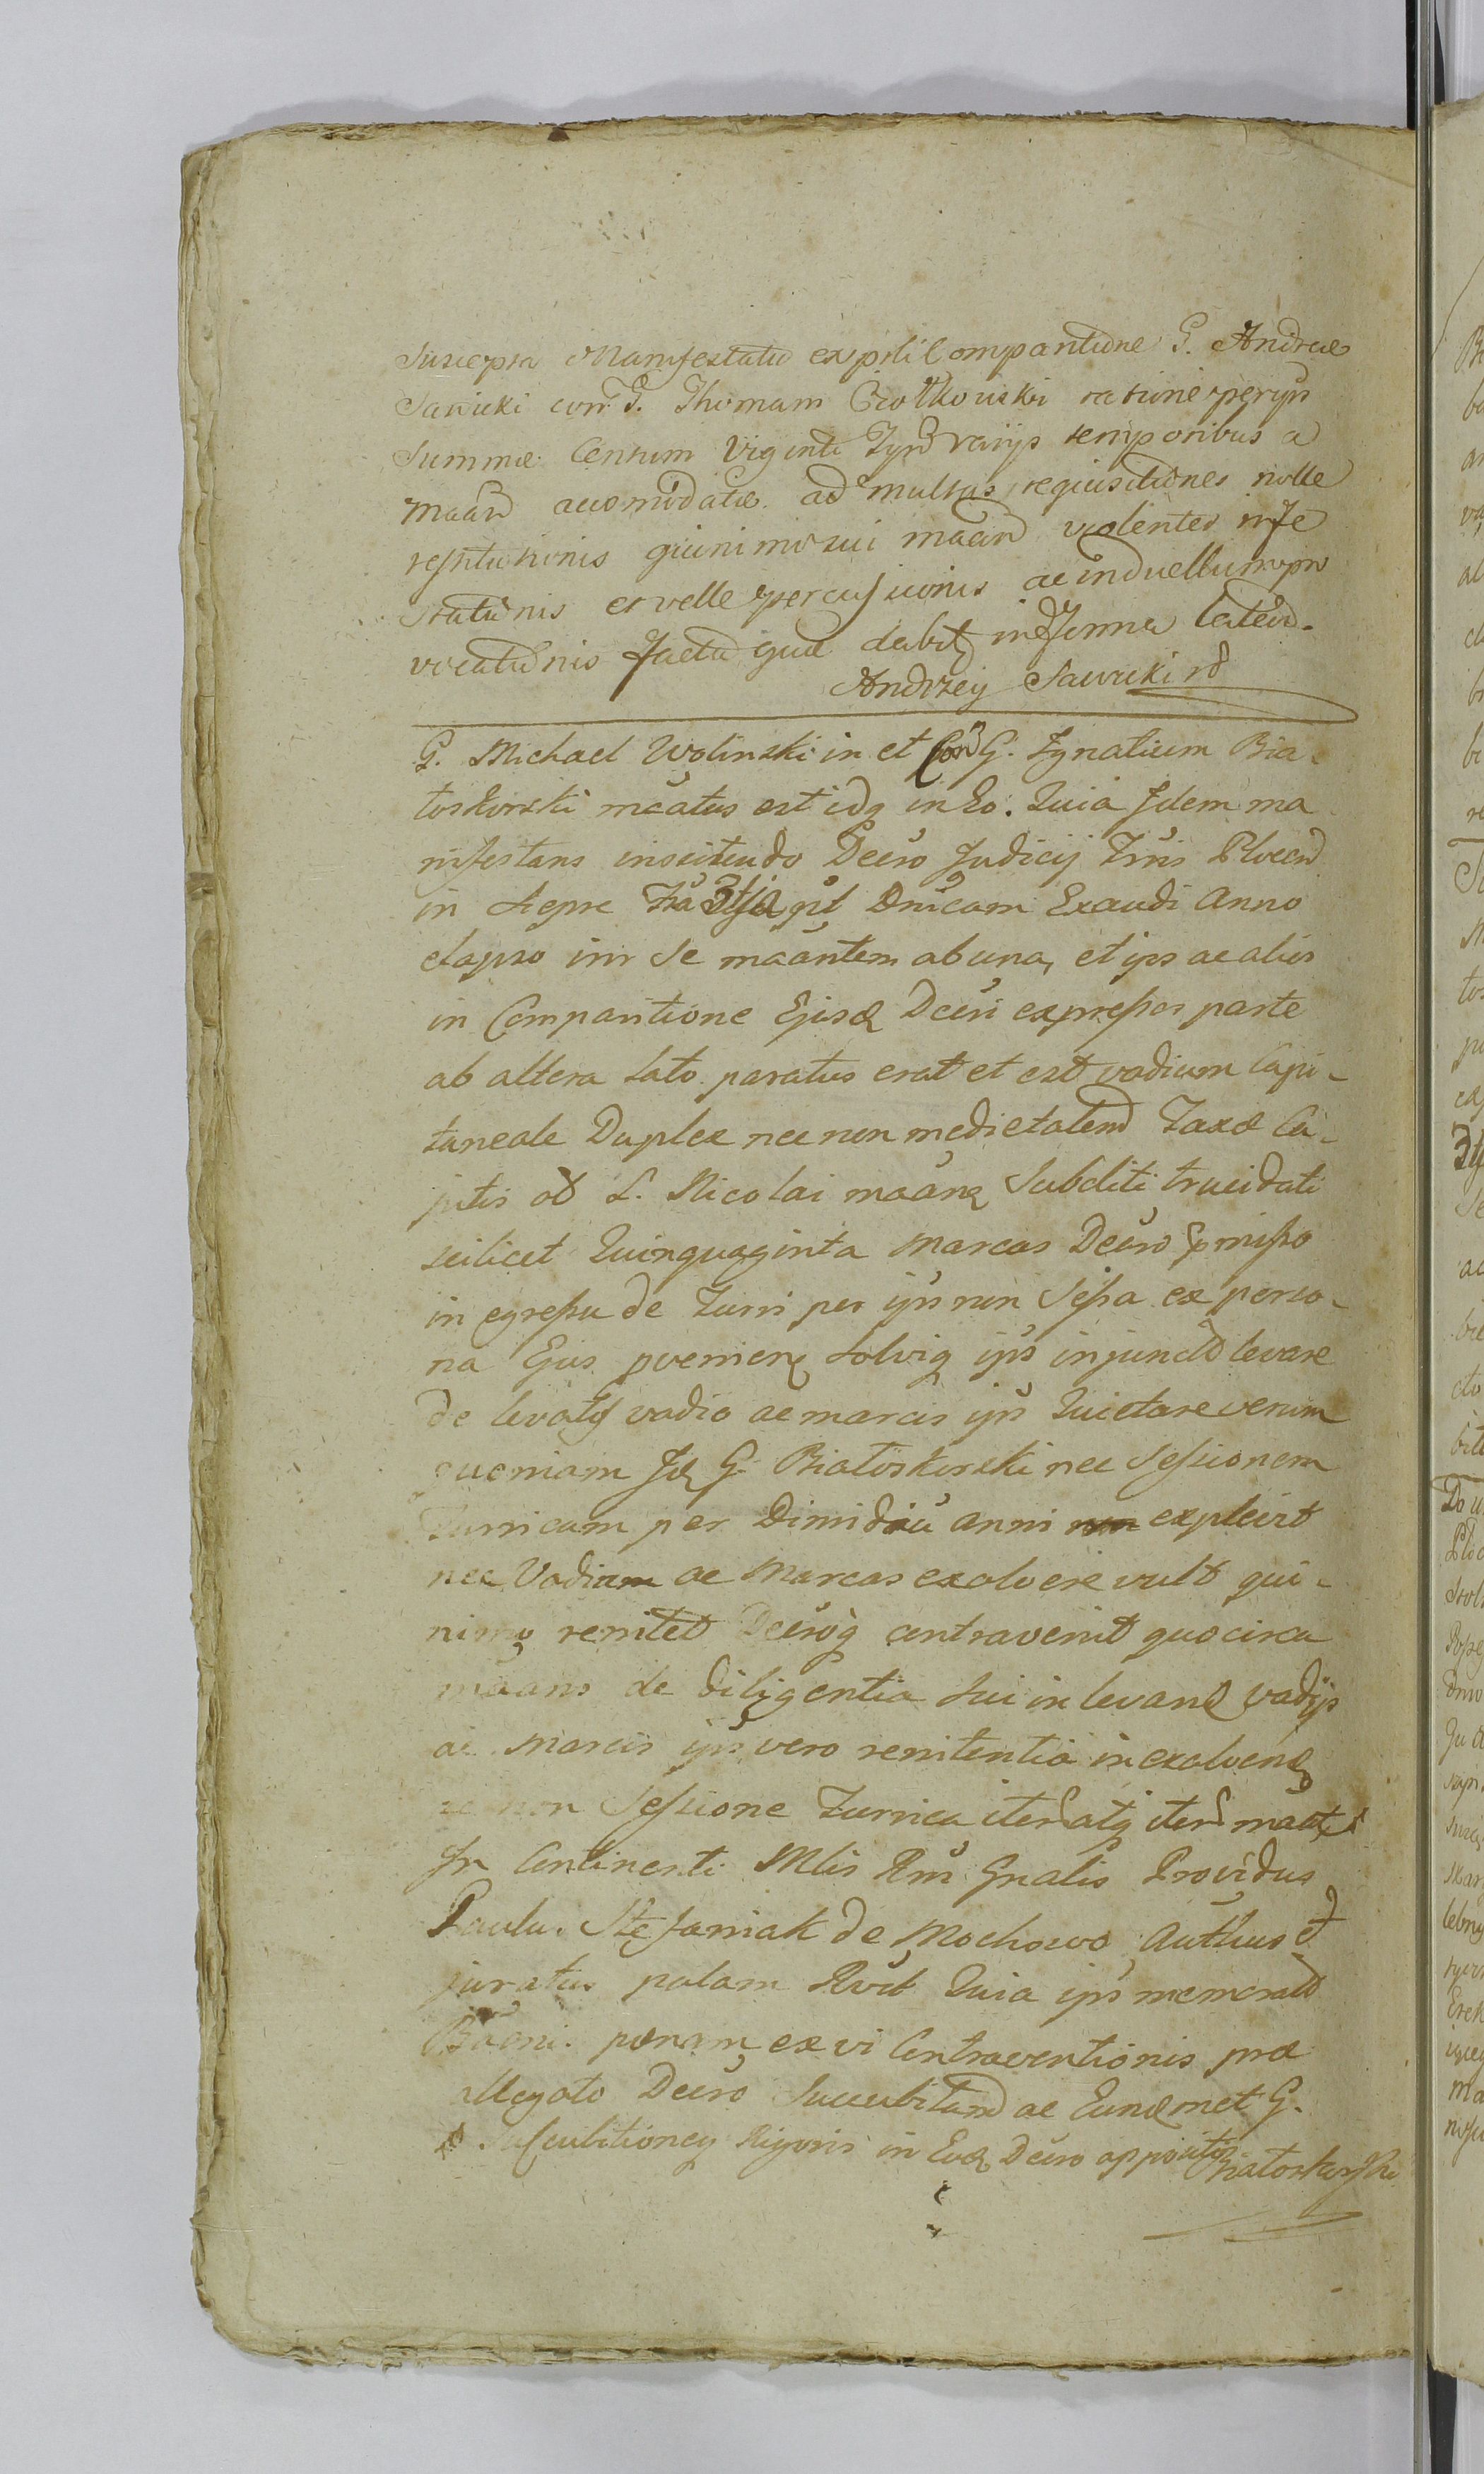 Suscepta Manifestatio ex psti Compantione G. Andreæ
Sawicki con. G. Thomam Ciołkowski ratione per ipsn
Summæ Centum Viginti Tynf varijs temporibus a
maan accomodatæ ad multas requisitiones nolle
restitutionis quinimo sui maan violenter infe
stationis et velle percussionis ac in duellum pro
vocationis facta quæ dabit in Forma laten.
Andrzey Sawicki
G. Michael Wolinski in et Con G. Ignatium Bia-
łoskorski mcatus est idq in Eo. Quia Idem ma
nifestans insistendo Decro Judicij Tris Plocen
in Repre Fra 3tia pst Dnicam Exaudi Anno
elapso intr se maantem ab una, et ips ac alios
in Comparitione Ejusd Decri expressos parte
ab altera lato paratus erat et est vadium Capi-
taneale Duplex nec non medietatem Taxæ Ca-
pitis ob L. Nicolai maans Subditi trucidati
scilicet Quinquaginta Marcas Decro promisso
in egressu de Turri per ipsn non Sessa ex perso-
na Ejus provenien Solviq ips injunct levare
de levatis vadio ac marcis ipsn Quietare verum
quoniam Id G. Białoskorski nec Sessionem
Turricam per Dimidiu anni explevit
nec Vadium ac Marcas exolvere vult qui-
nimo renitet Decroq contravenit quocirca
maans de diligentia sui in levand vadijs
ac Marcis ipsn vero renitentia in exolvend
ac non Sessione Turrica iter atq iter maat
In Continenti Mlis Rni Gnalis Providus
Paulus Stefaniak de Mochowo Authus et
juratus palam Rvit Quia ips memorat
pœnam ex vi Contraventionis præ
allegato Decro Succubitam ac Eund met G.
Succubitioneq Rigoris in Eod Decro appositor Białoskorski